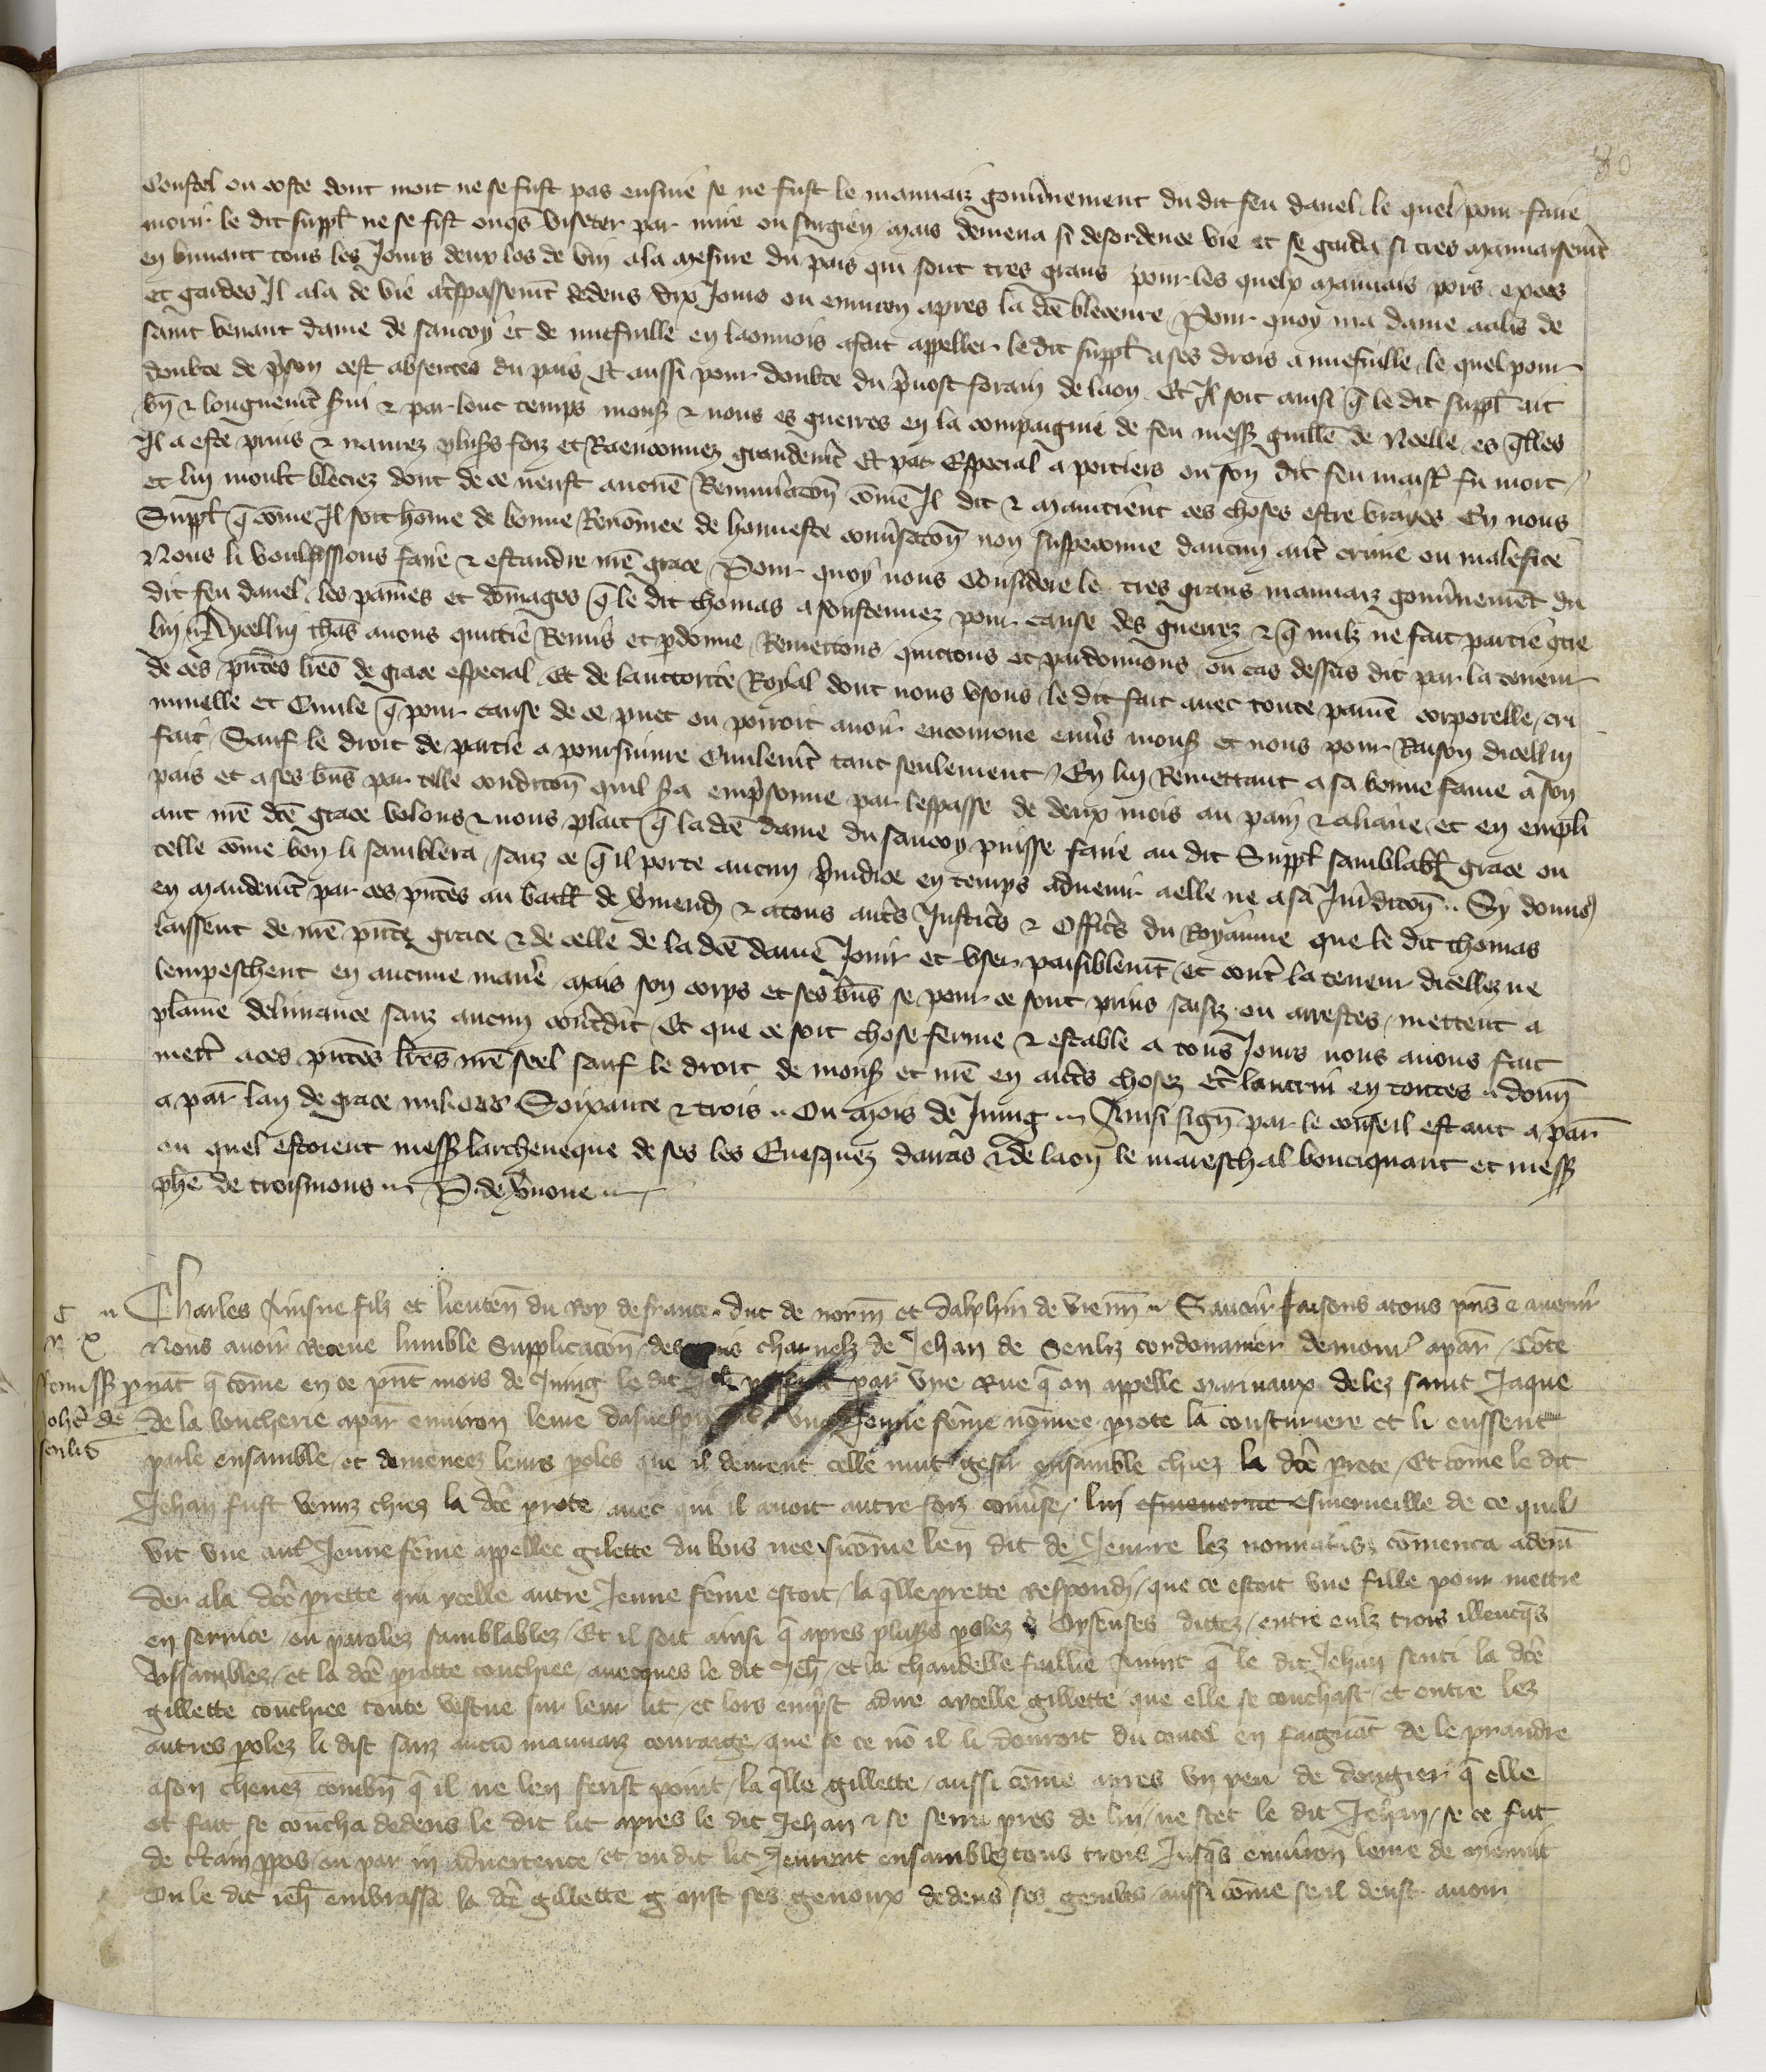 80
coustel ou coste dont mort ne se fust pas ensuie se ne fust le mauvaiz gouvnement du dit feu danel le quel pour faire
morir le dit suppl ne se fist onqs visecer par mire ou surgien mais demena si desordenee vie et se garda si tres mauvaisemt
en buvant tous les Jours deux los de vin a la mesure du pais qui sont tres grans pour les quelx mauvais pors exces
et gardes Il ala de vie a trespassemt dedens dix Jours ou environ apres la dce bleceure Pour quoy ma dame aalis de
saint venant dame de saucoy et de nuefville en laonnois a fait appeller le dit suppl a ses drois a nuefville le quel pour
doubte de pson cest absentes du pais Et aussi pour doubte du pvost forain de laon Et Il soit ainsi q le dit suppl ait
bn & longuemt svi & par lonc temps mons & nous es guerres en la compaignie de feu mess guille de Neelle es qlles
Il a este prins & navrez plusrs foiz et Raenconnez grandemt Et par Especial a poitiers ou son dit feu maist fu mort
et lui moult bleciez dont de ce neust aucune Remunacon come Il dit & maintient ces choses estre vrayes En nous
Suppl q come Il soit home de bonne Renomee de honneste convsacon non suspeconne daucun aut crime ou malefice
Nous li voulsissions faire & estandre nre grace Pour quoy nous Considere le tres grans mauvaiz gouvnement du
dit feu danel les paines et domages q le dit thomas a soustenuez pour cause des guerrez & q nulz ne fait partie gtre
lui Aycellui thas avons quittie Remis et pdonne Remettons quictons et pardonnons ou cas dessus dit par la teneur
de ces pntes lres de grace especial Et de lauttorite Royal dont nous Usons le dit fait avec toute paine corporelle cri
minelle et Civile q pour cause de ce puet ou porroit avoir encoroue envs mons et nous pour Raison dicellui
fait Sauf le droit de partie a poursuivre Civilemt tant seulement En lui Remettant a sa bonne fame a son
pais et a ses bns par celle condicon quil sa empsonne par lespasse de deux mois au pain & a liaue et en empli
ant nre dce grace volons & nous plait q la dce dame du saucoy puisse faire au dit Suppl samblabl grace ou
telle come bon li samblera sanz ce q il porte aucun pjudice en temps advenir a elle ne a sa Juridicon Sy donns
en mandemt par ces pntes au baill de vmend & a tous auts Justics & Offics du Royaume que le dit thomas
laissent de nre pnte grace & de celle de la dce dame Joir et user paisiblemt et cont la teneur dicellez ne
lempeschent en aucune mane mais son corps et ses bns se pour ce sont prins saisiz ou arrestes mettent a
plaine delivrance sanz aucun contdit Et que ce soit chose ferme & estable a tous Jours nous avons fait
mett a ces pntes lres nre seel sauf le droit de mons et nre en auts chosez et lautrui en toutes donn
a par lan de grace mil ccc Soixante & trois Ou mois de Juing Ainsi sign par le conseil estant a par
ou quel estoient mess larcheveque de sens les Evesquez darras & de laon le mareschal bouciquaut et mess
phe de troismons P de vnone
Charles Ainsne filz et lieuten du Roy de france duc de norm et dalphin de vienn Savoir faisons a tous pns & avenir
Nous avoir Recene lumble Supplicacon des amis charnelz de Jehan de Senliz cordouanier demour a par Cote
nat q come en ce pnt mois de Juing le dit Jeh passast par Une Rue q on appelle marivaux de lez saint Jaque
de la boucherie a par environ leure dasne Une Jeune feme nomee prote la cousturiere et li eussent
parle ensamble et demenees leurs poles que il devient celle nuit gesir ensamble chiez la dce prete Et come le dit
Jehan fust venuz chiez la dce prote avec qui il avoit autre foiz convse lui esmerveille de ce quil
vit une aut Jeune feme appellee gilette du bois nee sicome len dit de Jeurre lez nonnains comenca a dem
der a la dce prette qui ycelle autre Jeune feme estoit la qlle prette Respondi que ce estoit une fille pour mettre
en service ou parolez samblablez Et il soit ainsi q apres plusrs polez Oyseuses dittez entre eulz trois illencqs
Assamblez et la dce prette couchiee avecques le dit Jeh et la chandelle faillie Avint q le dit Jehan senti la dce
gillette couchiee toute vestue sur leur lit et lors empst a dire a ycelle gillette que elle se couchast et entre lez
autres polez li dist sanz aucu mauvaiz couraige que se ce no il li donroit du coutel en faignat de le prandre
a son chevez combn q il ne len ferist point la qlle gillette aussi come apres un peu de dongier q elle
ot fait se coucha dedens le dit lit apres le dit Jehan & se serra pres de lui ne scet le dit Jehan se ce fut
de ctain ppos ou par in advertence et ou dit lit Jeurent ensamblez tous trois Jusqs environ leure de mienuit
Ou le dit ieh embrassa la dce gillette & mist ses genoux dedens ses gembes aussi come se il deust avoir
c
R X
Remiss p
Johe de
senlis